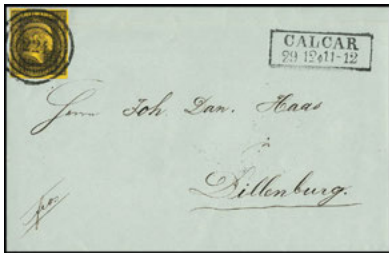 224
CALCAR
29 12 * 11-12
Herrn Joh. Dan. Haas
Dillenburg.